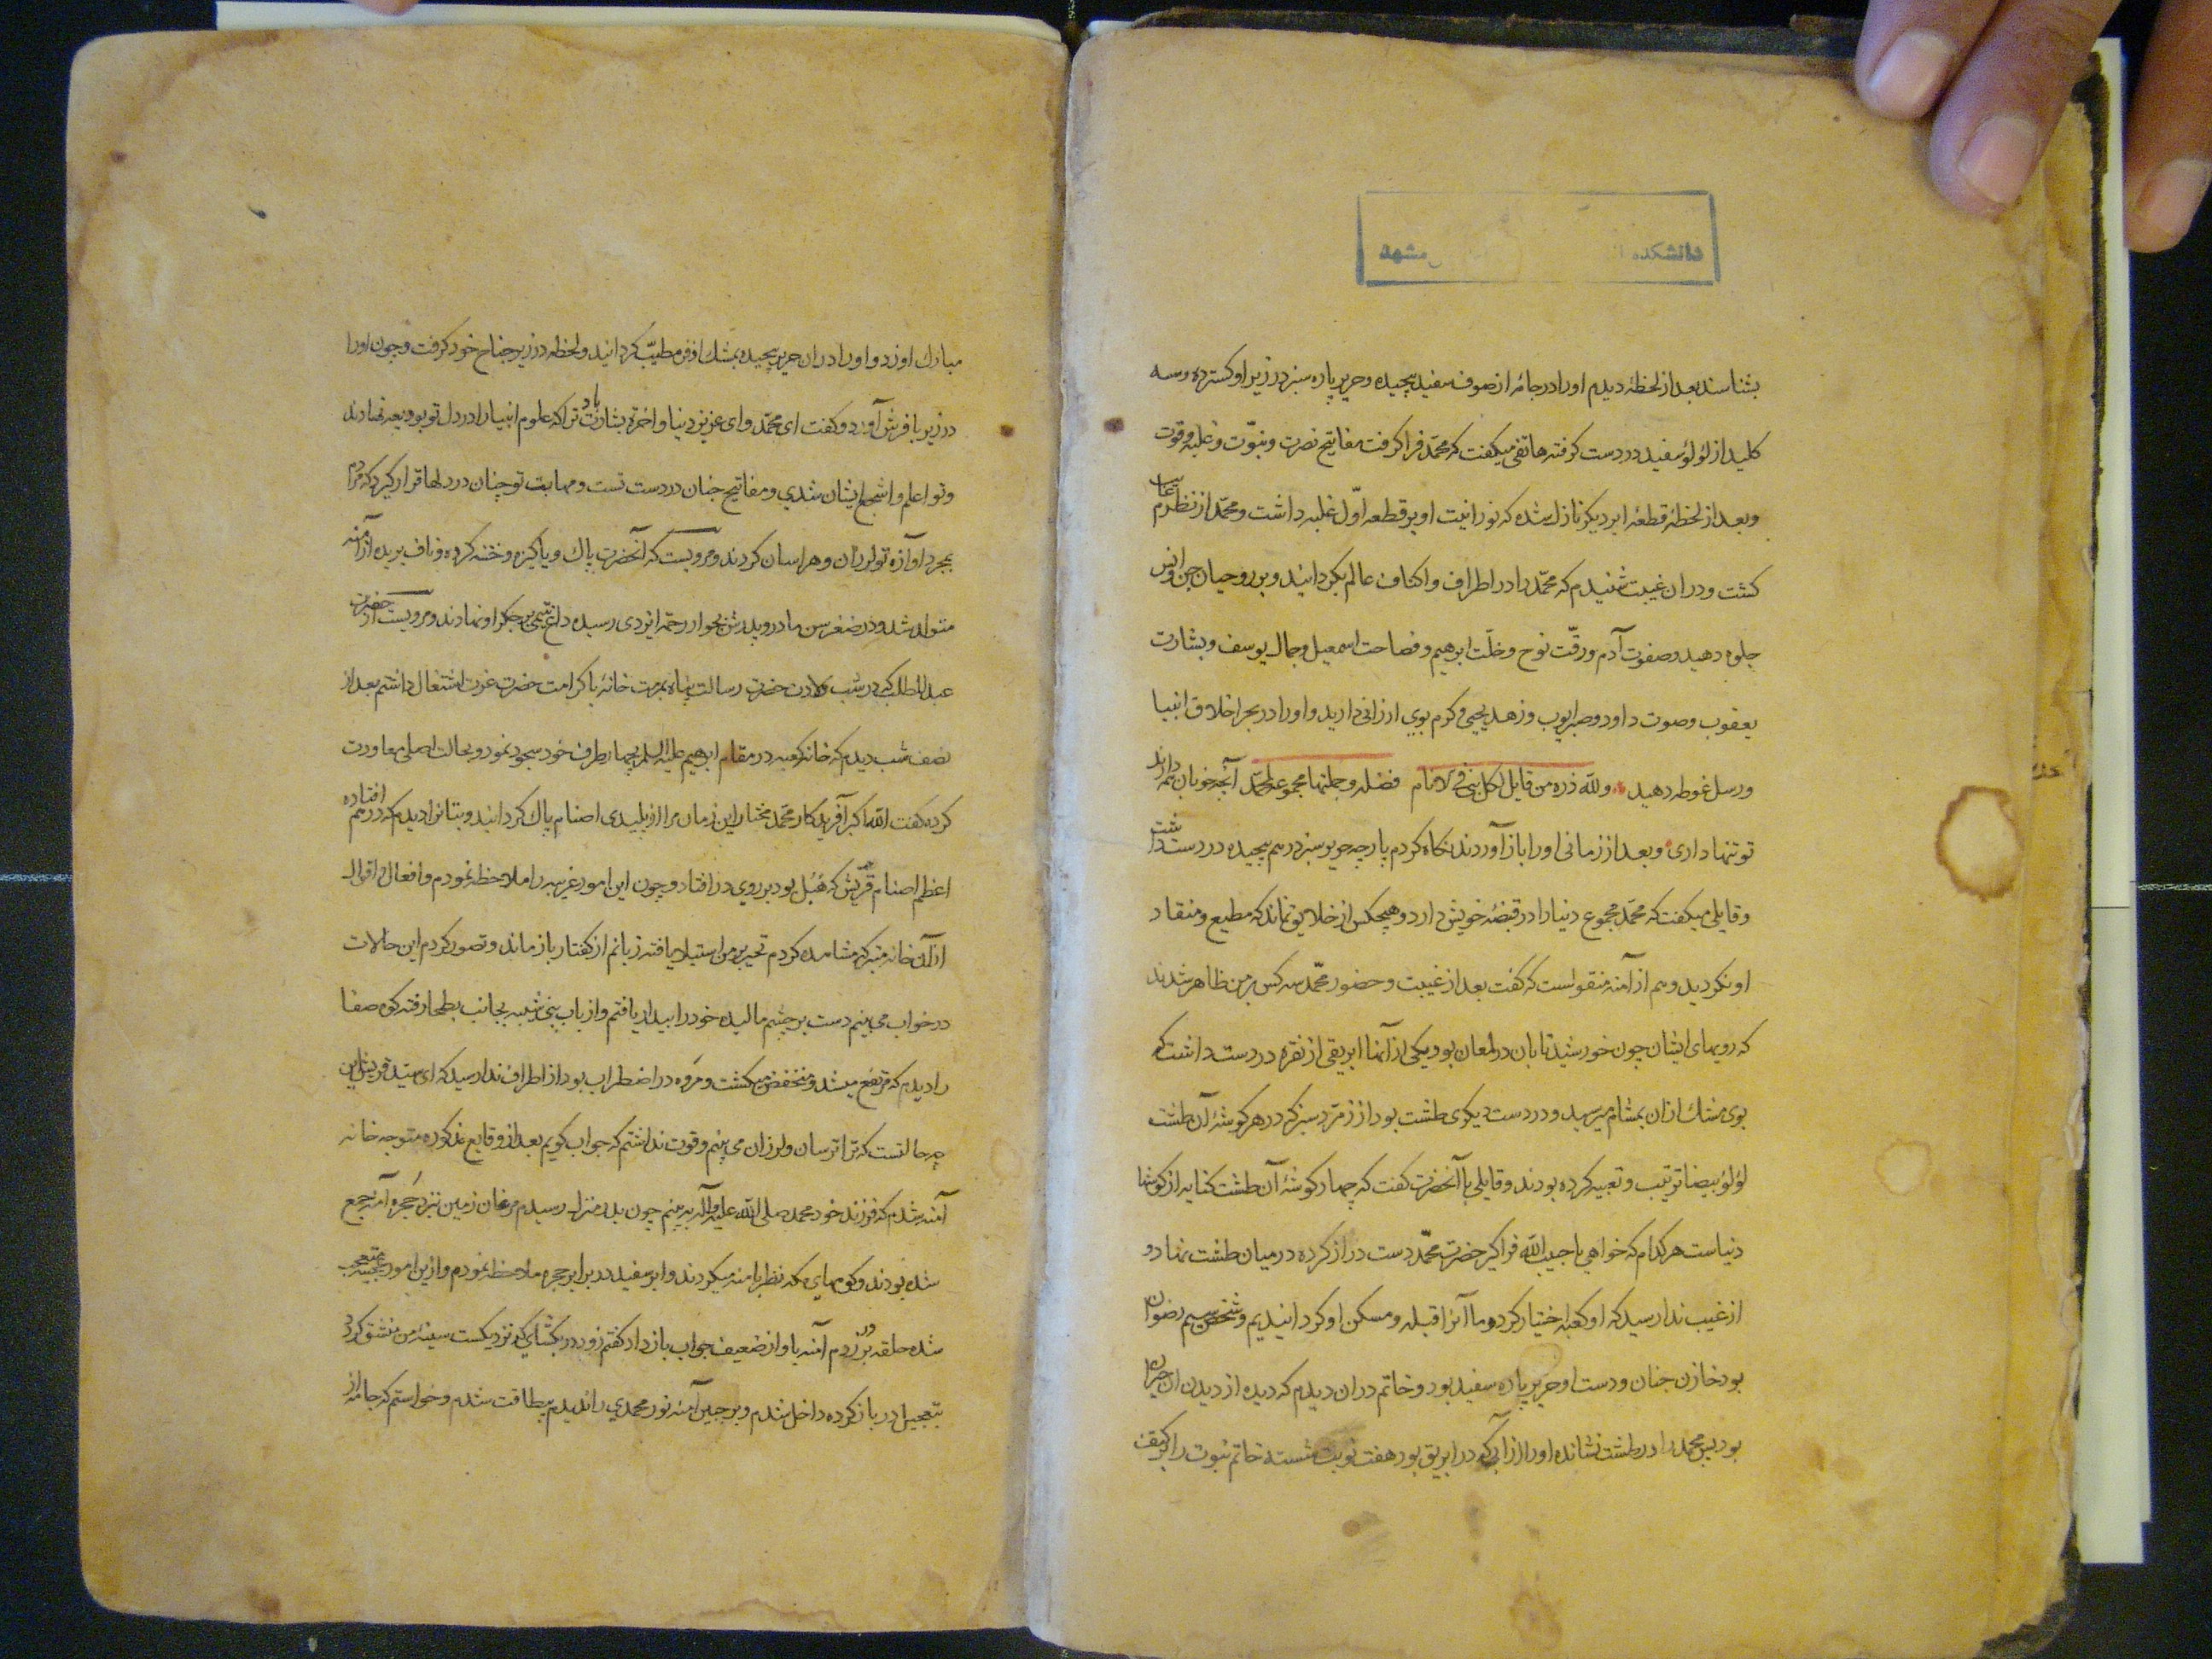 دانشکده مشهد
بشناسند بعد از لحظهٔ دیدم او را در جامهٔ از صوف سفید پیچیده و حریر پاره سبز در زیر او کسترده و سه
کلید از لؤلؤ سفید در دست کرفته هاتفی میکفت که محمّد فرا کرفت مفاتیح نصرت و نبوّت و غلبه و قوت
و بعد از لحظهٔ قطعهٔ ابر دیکر نازل شده که نورانیت او بر قطعه اوّل غلبه داشت و محمّد از نظرم غایب
کشت و در ان غیبت شنیدم که محمّد را در اطراف و اکناف عالم بکردانید و بر روحیان جن و انس
جلوه دهید و صفوت آدم و رقّت نوح و خلّت ابرهیم و فصاحت اسمعیل و جمال یوسف و بشارت
یعقوب و صوت داود و صبر ایوب و زهد یحیی و کرم بوی ارزانی دارید و او را در بحر اخلاق انبیا
و رسل غوطه دهید ولله دره من قایل لکل نبی فی الانام فضله وجملتها مجموعة لمحمّد آنچه خوبان همه دارند
تو تنها داری و بعد از زمانی او را باز آوردند نکاه کردم پارچه حریر سبز در هم پیچیده در دست داشت
و قایلی میکفت که محمّد مجموع دنیا را در قبضهٔ خویش دارد و هیچکس از خلایق نماند که مطیع و منقاد
او نکردید و هم از آمنه منقولست که کفت بعد از غیبت و حضور محمّد سه کس بر من ظاهر شدند
که رویهای ایشان چون خورشید تابان در لمعان بود یکی از آنها ابریقی از نقره در دست داشت که
بوی مشک از ان بمشام میرسید و در دست دیکری طشت بود از زمرّد سبز که در هر کوشهٔ آن طشت
لؤلؤ بیضا ترتیب و تعبیه کرده بودند و قایلی با آنحضرت کفت که چهار کوشهٔ آن طشت کنایه از کوشها
دنیاست هر کدام که خواهی یا حبیب الله فرا کیر حضرت محمّد دست دراز کرده در میان طشت نهاد و
از غیب ندا رسید که او کعبه اختیار کرد و ما آنرا قبله و مسکن او کردانیدیم و شخص سیم رضوان
بود خازن جنان و دست او حریر پاره سفید بود و خاتم در ان دیدم که دیده از دیدن ان حیران
بود پس محمد را در طشت نشانده او را از آبی که در ابریق بود هفت نوبت شسته خاتم نبوت را بر کتف
مبارک او زد و او را در ان حریر پیچیده بمشک اذفر مطیّب کردانید و لحظه در زیر جناح خود کرفت و چون او را
در زیر با فرش آورد و کفت ای محمّد و ای عزیز دنیا و آخرة بشارت باد ترا که علوم انبیا را در دل تو بودیعه نهادند
و تو اعلم و اشجع ایشان شدی و مفاتیح جنان در دست تست و مهابت تو چنان در دلها قرار کیرد که مردم
بمجرد آوازه تو لرزان و هراسان کردند و مرویست که آنحضرت پاک و پاکیزه و ختنه کرده و ناف بریده از آمنه
متولد شد و در صغر سن مادر و پدرش بجوار رحمة ایزدی رسیده داغ یتیمی بر جکر او نهادند و مرویست از حضرت
عبدالمطلب که در شب ولادت حضرت رسالت پناه بمرمت خانهٔ با کرامت حضرت عزت اشتغال داشتم بعد از
نصف شب دیدم که خانه کعبه در مقام ابرهیم علیه السلم بچهار طرف خود سجود نمود و بحالت اصلی معاودت
کرده کفت الله اکبر آفریدکار محمّد مختار این زمان مرا از پلیدی اصنام پاک کردانید و بتان را دیدم که در هم افتاده
اعظم اصنام قریش که هُبل بود بر روی در افتاد و چون این امور غریبه را ملاحظه نمودم و افعال و اقوال
از ان خانه متبرکه مشاهده کردم تحیر بر من استیلا یافته زبانم از کفتار باز ماند و تصور کردم این حالات
در خواب می بینم دست بر چشم مالیده خود را بیدار یافتم و از باب بنی شیبه بجانب بطحا رفته کوه صفا
را دیدم که مرتفع میشد و منخفض میکشت و مَروه در اضطراب بود از اطراف ندا رسید که ای سید قریش این
چه حالتست که ترا ترسان و لرزان می بینم و قوت نداشتم که جواب کویم بعد از وقایع مذکوره متوجه خانه
آمنه شدم که فرزند خود محمد صلی الله علیه و آله به بینم چون بدر منزل رسیدم مرغان زمین نزد حُجره آمنه جمع
شده بودند و کوههای مکه نظر بامنه میکردند و ابر سفید در برابر حجره ملاحظه نمودم و ازین امور عجیبه متعجب
شده حلقه بر در زدم آمنه باواز ضعیف جواب باز داد کفتم زود در بکشای که نزدیکست سینه من منشق کردد
بتعجیل در باز کرده داخل شدم و بر جبین آمنه نور محمدی را ندیدم بیطاقت شدم و خواستم که جامه از